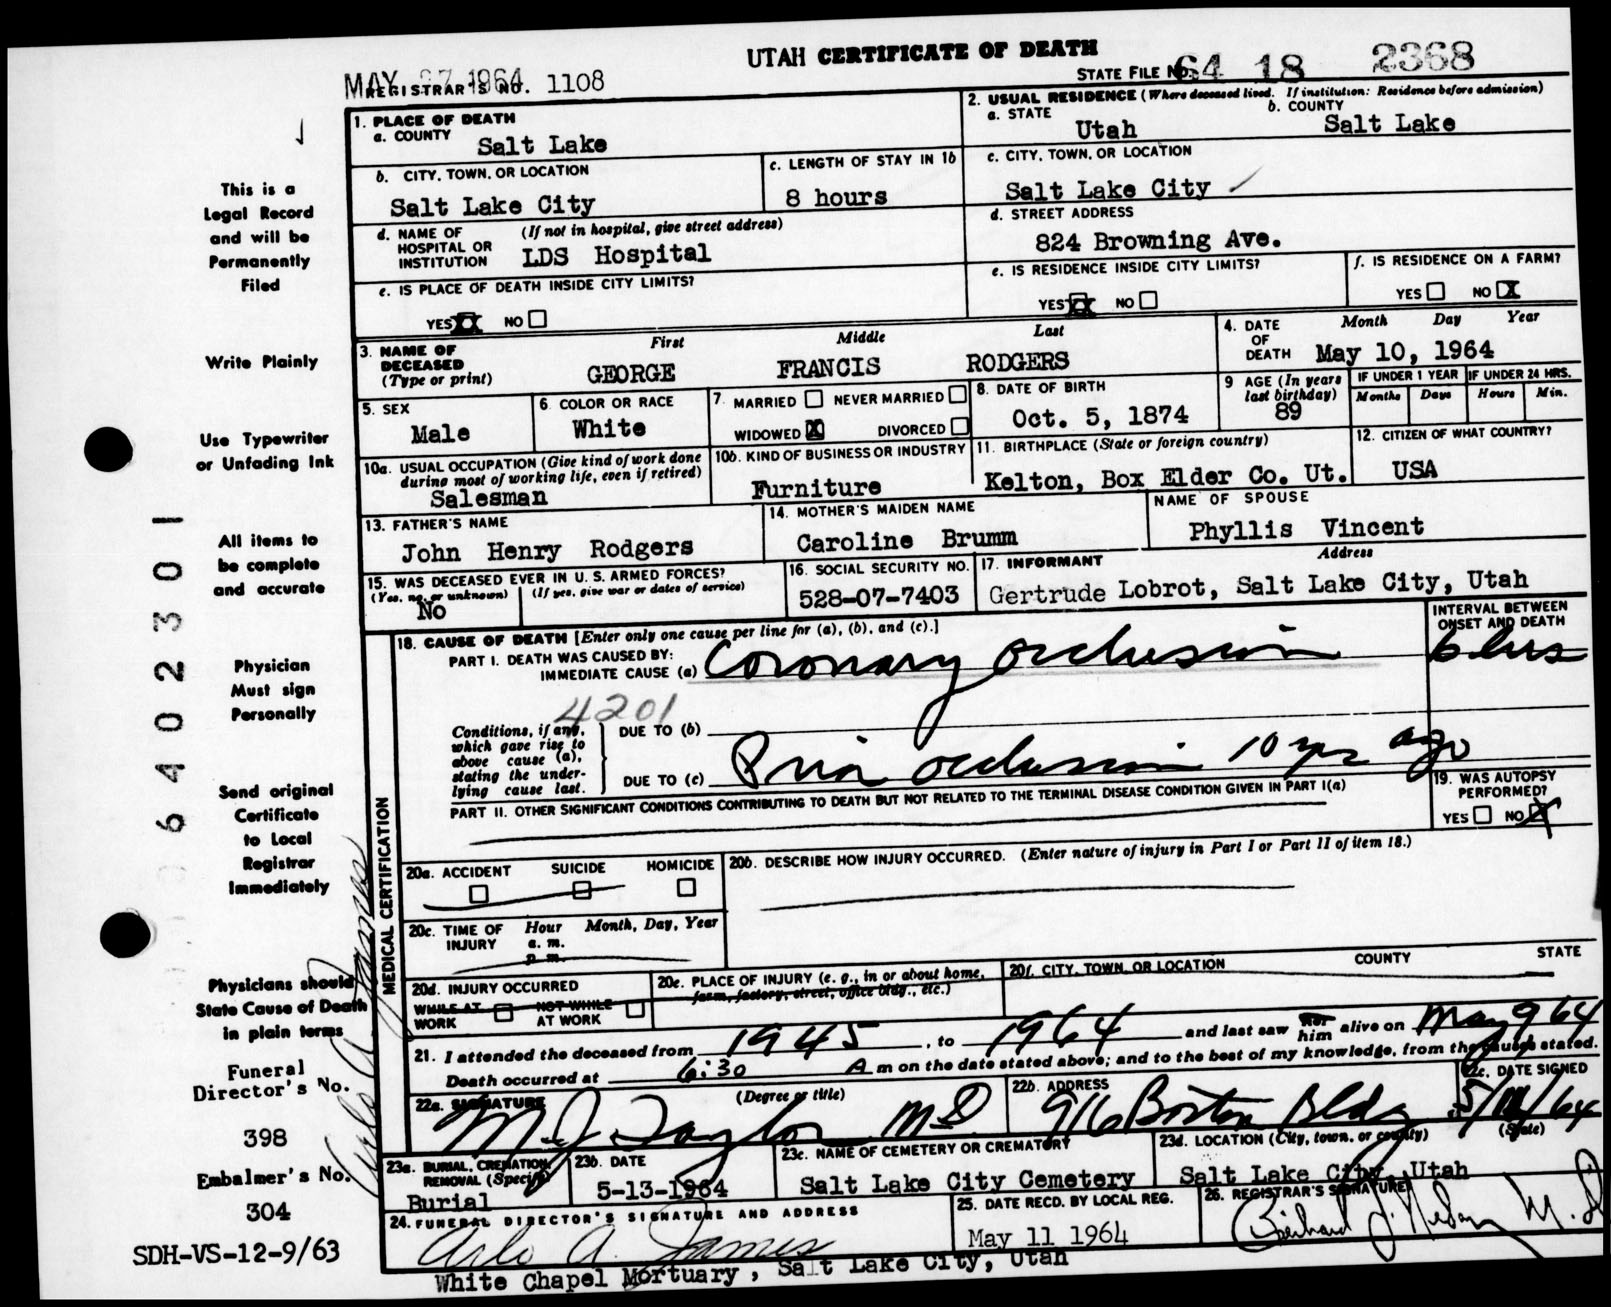 UTAH CERTIFICATE OF DEATH
MAY 27 1964
REGISTRAR'S NO. 1108
STATE FILE NO. 64 18 2368
1. PLACE OF DEATH
a. COUNTY Salt Lake
2. USUAL RESIDENCE (Where deceased lived. If institution: Residence before admission)
a. STATE Utah b. COUNTY Salt Lake
b. CITY, TOWN, OR LOCATION Salt Lake City
c. LENGTH OF STAY IN 1b 8 hours
c. CITY, TOWN, OR LOCATION Salt Lake City
d. NAME OF HOSPITAL OR INSTITUTION (If not in hospital, give street address) LDS Hospital
d. STREET ADDRESS 824 Browning Ave.
e. IS PLACE OF DEATH INSIDE CITY LIMITS?
YES XX NO
e. IS RESIDENCE INSIDE CITY LIMITS?
YES XX NO
f. IS RESIDENCE ON A FARM?
YES NO X
3. NAME OF DECEASED (Type or print)
First Middle Last
GEORGE FRANCIS RODGERS
4. DATE OF DEATH Month Day Year
May 10, 1964
5. SEX Male
6. COLOR OR RACE White
7. MARRIED NEVER MARRIED
WIDOWED X DIVORCED
8. DATE OF BIRTH Oct. 5, 1874
9 AGE (In years last birthday) 89
IF UNDER 1 YEAR IF UNDER 24 HRS.
Months Days Hours Min.
10a. USUAL OCCUPATION (Give kind of work done during most of working life, even if retired)
Salesman
10b. KIND OF BUSINESS OR INDUSTRY
Furniture
11. BIRTHPLACE (State or foreign country)
Kelton, Box Elder Co. Ut.
12. CITIZEN OF WHAT COUNTRY?
USA
13. FATHER'S NAME
John Henry Rodgers
14. MOTHER'S MAIDEN NAME
Caroline Brumm
NAME OF SPOUSE
Phyllis Vincent
15. WAS DECEASED EVER IN U. S. ARMED FORCES?
(Yes, no, or unknown) (If yes, give war or dates of service)
No
16. SOCIAL SECURITY NO.
528-07-7403
17. INFORMANT Address
Gertrude Lobrot, Salt Lake City, Utah
18. CAUSE OF DEATH [Enter only one cause per line for (a), (b), and (c).]
PART I. DEATH WAS CAUSED BY:
IMMEDIATE CAUSE (a) Coronary occlusion
INTERVAL BETWEEN ONSET AND DEATH
6 hrs
4201
Conditions, if any, which gave rise to above cause (a), stating the underlying cause last.
DUE TO (b)
DUE TO (c) Prior occlusion 10 yrs ago
PART II. OTHER SIGNIFICANT CONDITIONS CONTRIBUTING TO DEATH BUT NOT RELATED TO THE TERMINAL DISEASE CONDITION GIVEN IN PART I(a)
19. WAS AUTOPSY PERFORMED?
YES NO X
20a. ACCIDENT SUICIDE HOMICIDE
20b. DESCRIBE HOW INJURY OCCURRED. (Enter nature of injury in Part I or Part II of item 18.)
20c. TIME OF INJURY Hour Month, Day, Year
a. m.
p. m.
20d. INJURY OCCURRED
WHILE AT WORK NOT WHILE AT WORK
20e. PLACE OF INJURY (e. g., in or about home, farm, factory, street, office bldg., etc.)
20f. CITY, TOWN, OR LOCATION COUNTY STATE
21. I attended the deceased from 1945, to 1964 and last saw her him alive on May 9 64
Death occurred at 6:30 A m on the date stated above; and to the best of my knowledge, from the causes stated.
22a. SIGNATURE (Degree or title)
M. J. Taylor MD
22b. ADDRESS
916 Boston Bldg
22c. DATE SIGNED
5/11/64
23a. BURIAL, CREMATION, REMOVAL (Specify)
Burial
23b. DATE
5-13-1964
23c. NAME OF CEMETERY OR CREMATORY
Salt Lake City Cemetery
23d. LOCATION (City, town, or county) (State)
Salt Lake City, Utah
24. FUNERAL DIRECTOR'S SIGNATURE AND ADDRESS
Arlo A. James
White Chapel Mortuary, Salt Lake City, Utah
25. DATE RECD. BY LOCAL REG.
May 11 1964
26. REGISTRAR'S SIGNATURE
M. D.
MEDICAL CERTIFICATION
This is a
Legal Record
and will be
Permanently
Filed
Write Plainly
Use Typewriter
or Unfading Ink
All items to
be complete
and accurate
Physician
Must sign
Personally
Send original
Certificate
to Local
Registrar
Immediately
Physicians should
State Cause of Death
in plain terms
Funeral
Director's No.
398
Embalmer's No.
304
SDH-VS-12-9/63
Arlo A James
640230